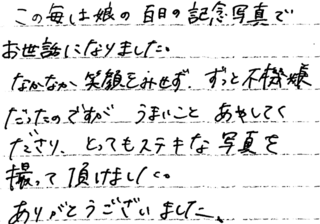 この毎は娘の百日の記念写真で
お世話になりました。
なかなか笑顔をみせず、ずっと不機嫌
だったのですが うまいこと あやしてく
ださり、とってもステキな写真を
撮って頂けました。
ありがとうございました。